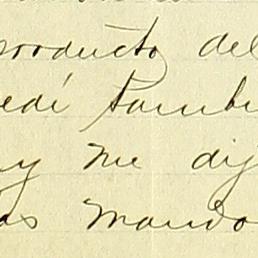 producto del
edí tambi
y me dij
as mando